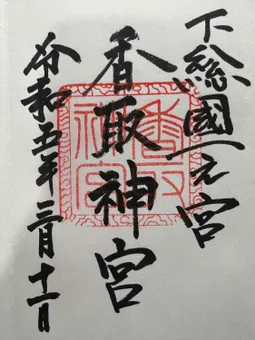 下総國一之宮
香取神宮
令和五年三月十一日
香取神宮